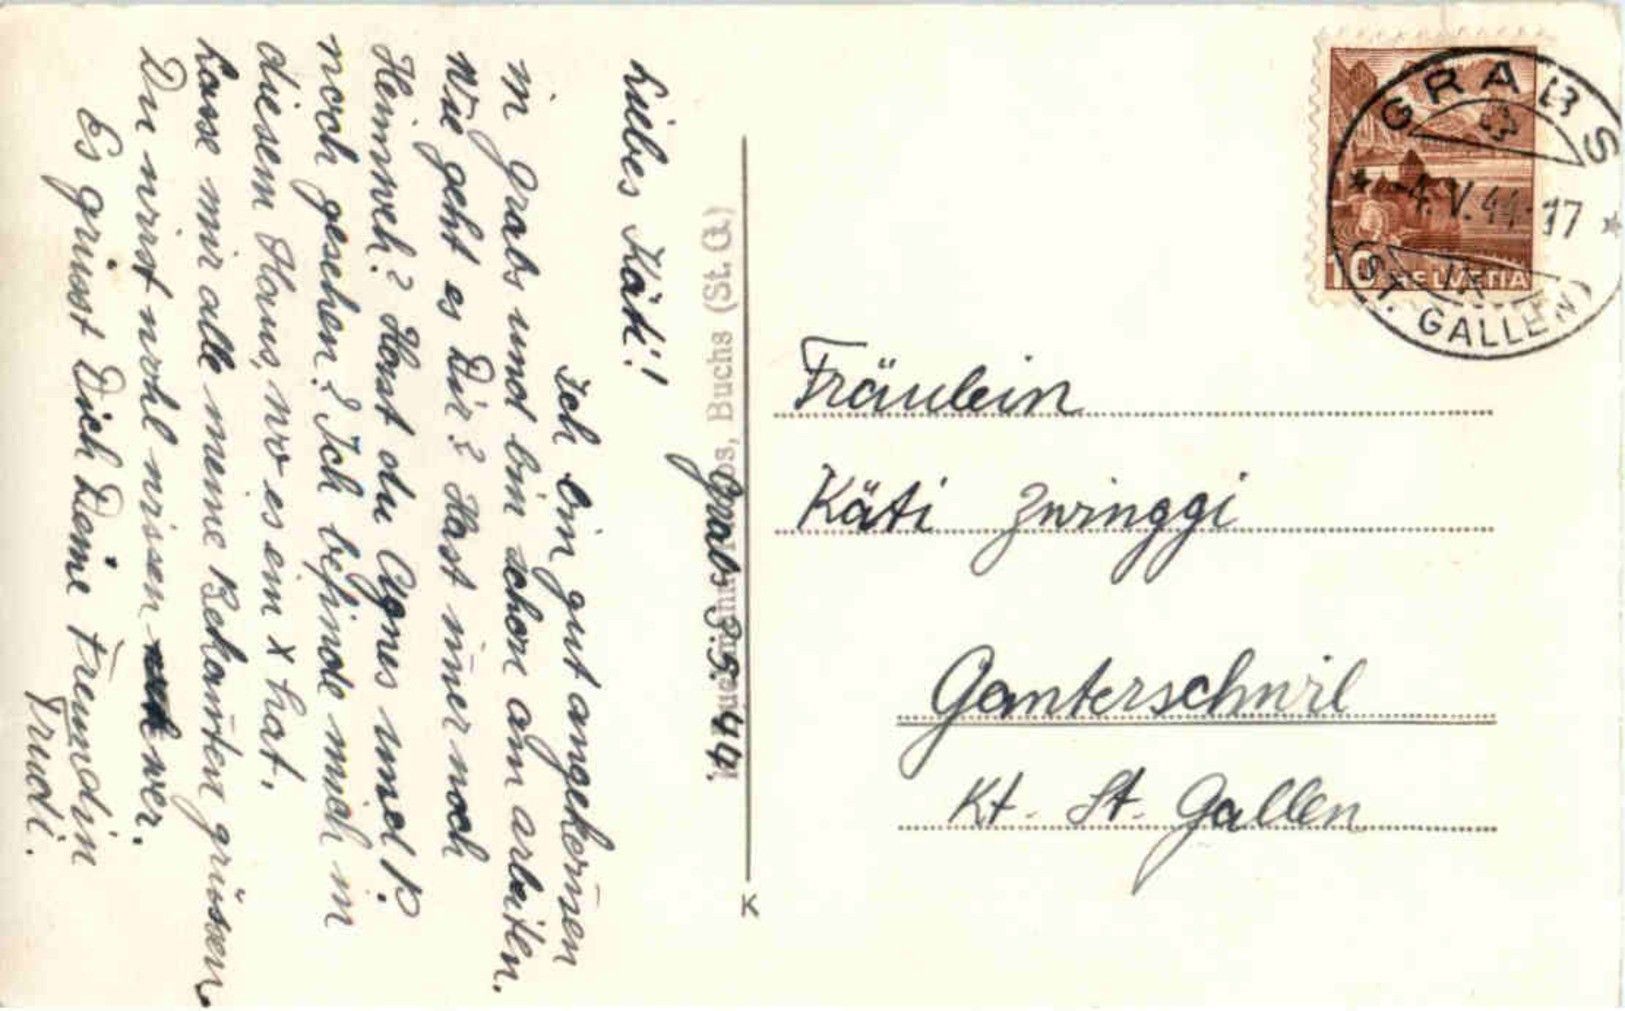 Grabs 3.5.44.
Liebes Käti!
Ich bin gut angekom̄en
in Grabs und bin schon am arbeiten.
Wie geht es Dir? Hast im̄er noch
Heimweh? Hast du Agnes und P.
noch gesehen? Ich befinde mich in
diesem Haus, wo es ein x hat.
Lasse mir alle meine Bekan̄ten grüssen
Du wirst wohl wissen wer.
Es grüsst Dich Deine Freundin
Trudi.
Buchs (St. G.)
K
GRABS
4.V.44-17
(ST. GALLEN)
10 HELVETIA
Fräulein
Käti Zwinggi
Ganterschwil
Kt. St. Gallen